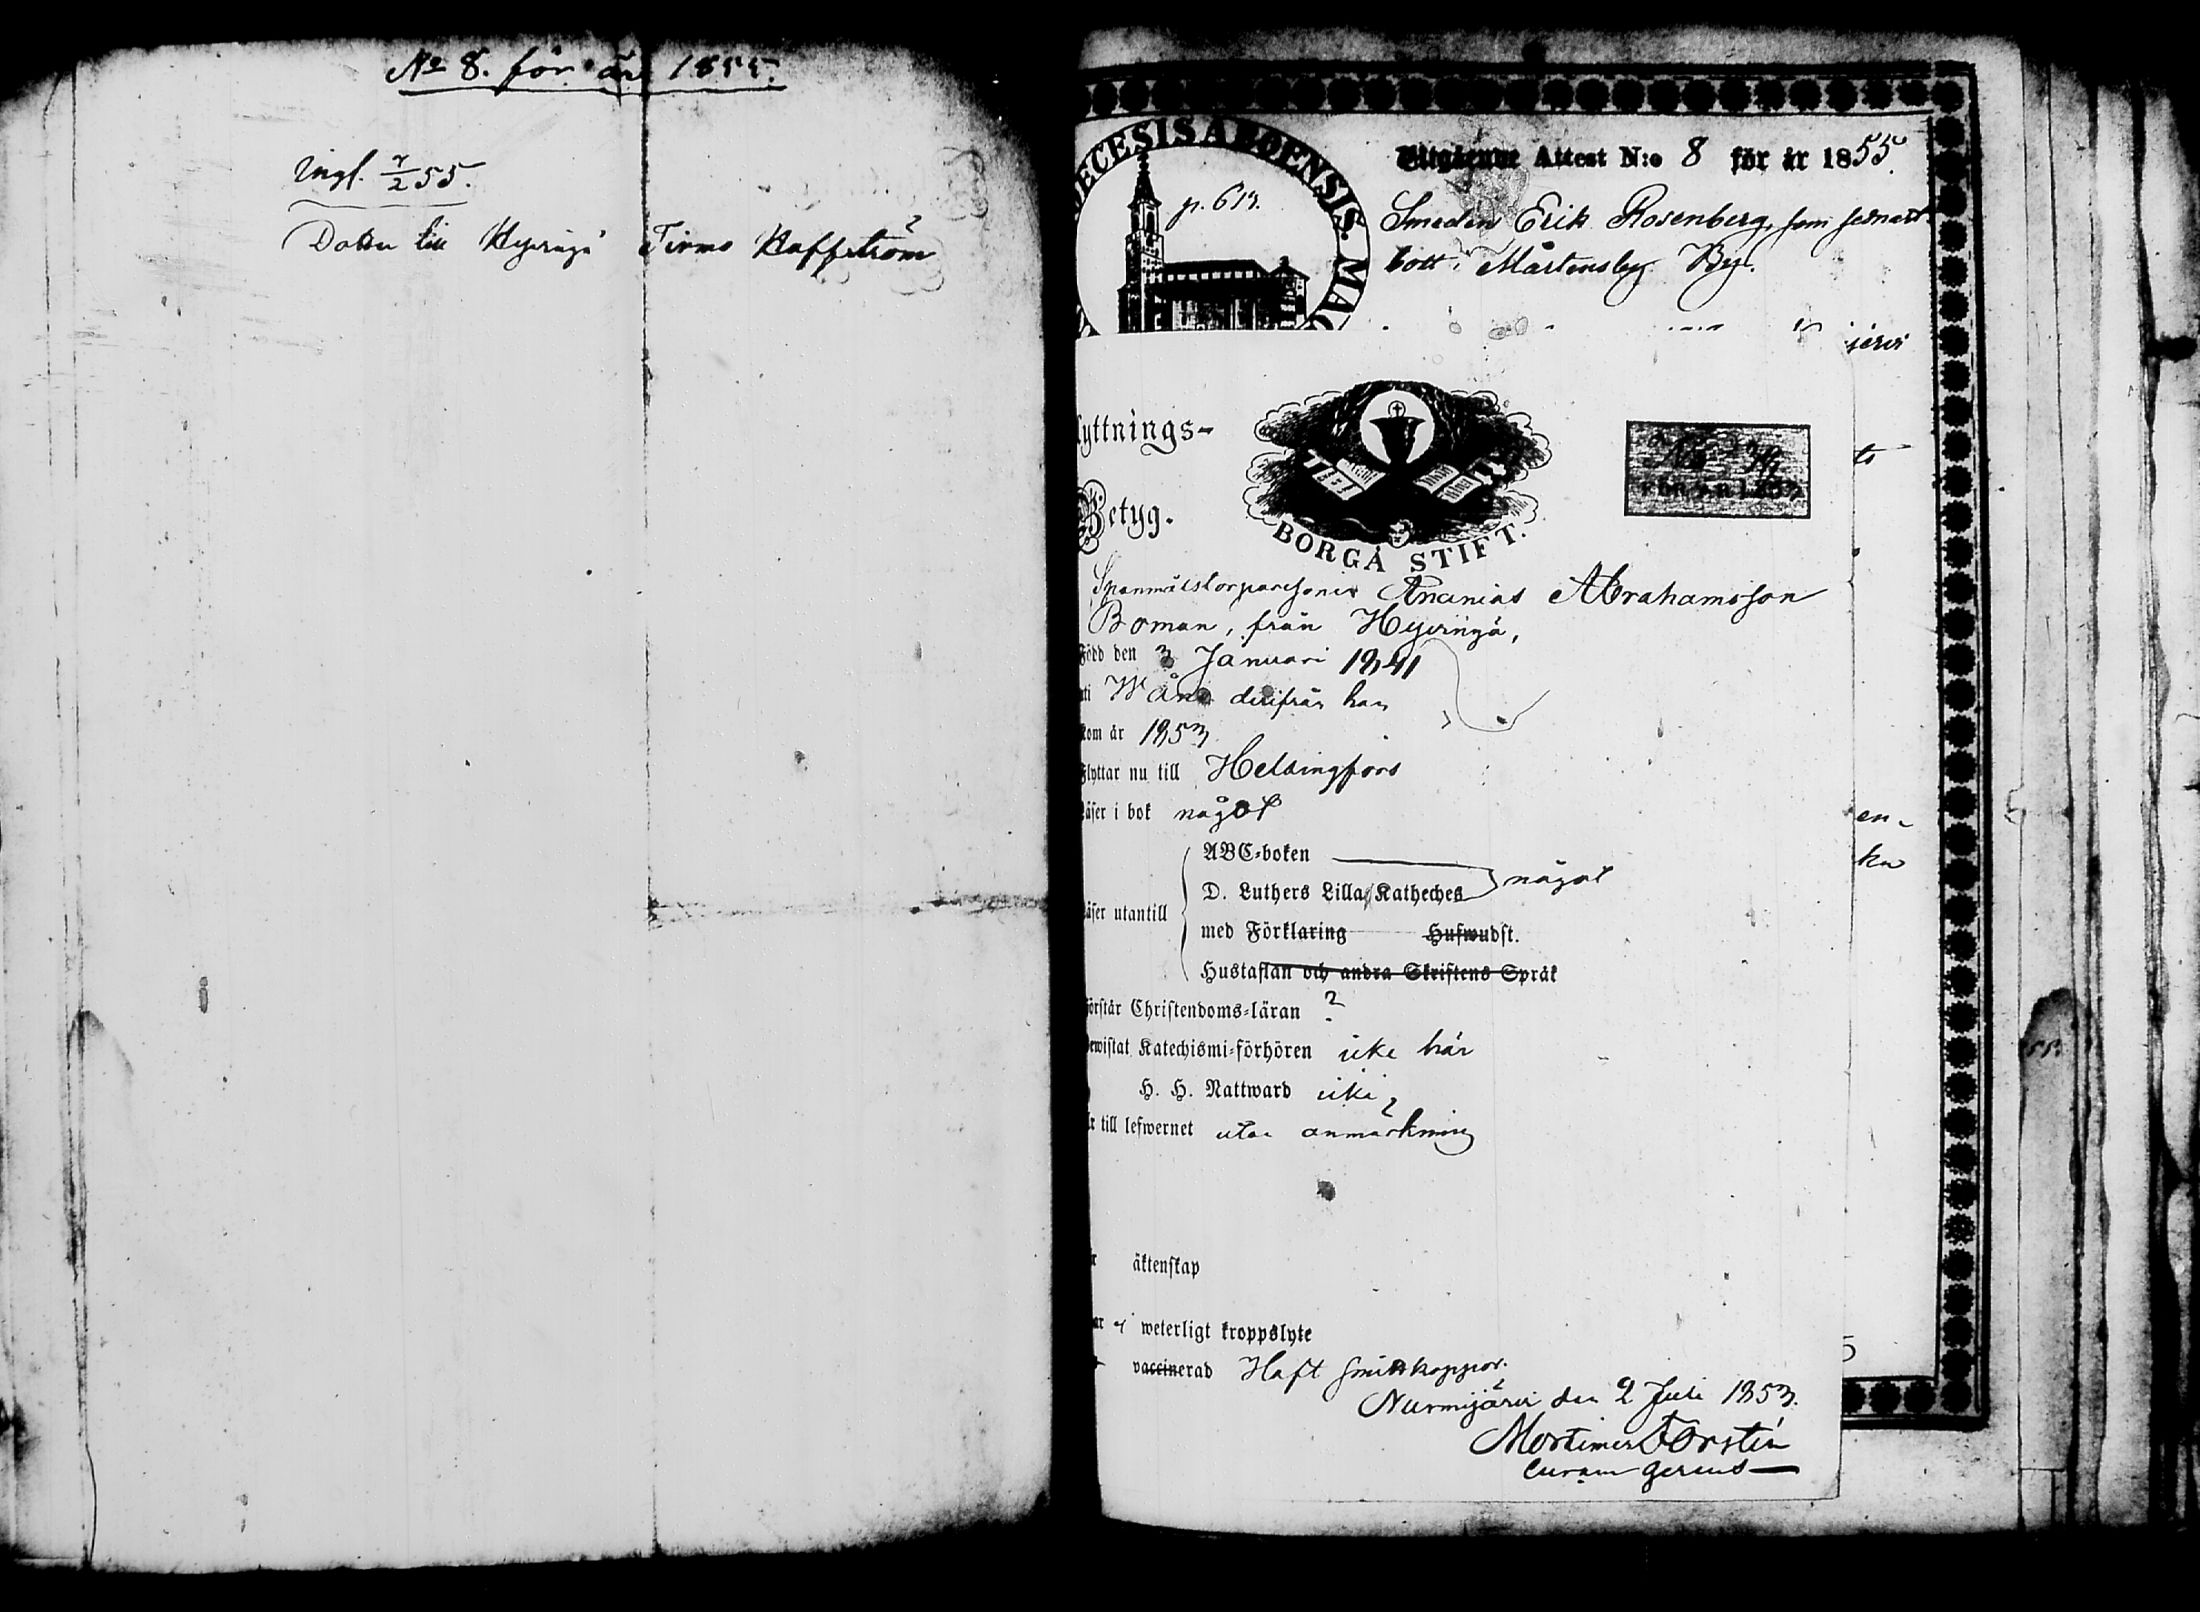 No 8. för år 1855.
Ingl. 7/2 55.
Dotter till Hyvingä Firmo Kaffström
DIECESIS ABOENSIS. MAG
p. 613.
Utgående Attest N:o 8 för år 1855.
Smeden Erik Rosenberg, som sednast
bott i Mårtensby By.
järvi
lyttnings-
Betyg.
BORGÅ STIFT.
to
Spanmålstorparesonen Ananias Abrahamsson
Boman, från Hyvingä,
Född den 3 Januari 1841
uti Wånå derifrån han
kom år 1853
Flyttar nu till Helsingfors
Läser i bok något
en-
ABC-boken
ka
D. Luthers Lilla Katheches
något
äser utantill
med Förklaring Hufwudst.
Hustaflan och andra Skriftens Språk
Förstår Christendoms-läran ?
Bewistat Katechismi-förhören icke här
H. H. Nattward icke
Är till lefwernet utan anmärkning
är äktenskap
ar ej weterligt kroppslyte
vaccinerad Haft smittkoppor.
Nurmijärvi den 2 Juli 1853.
Mortimer Forstén
Curam gerens
55